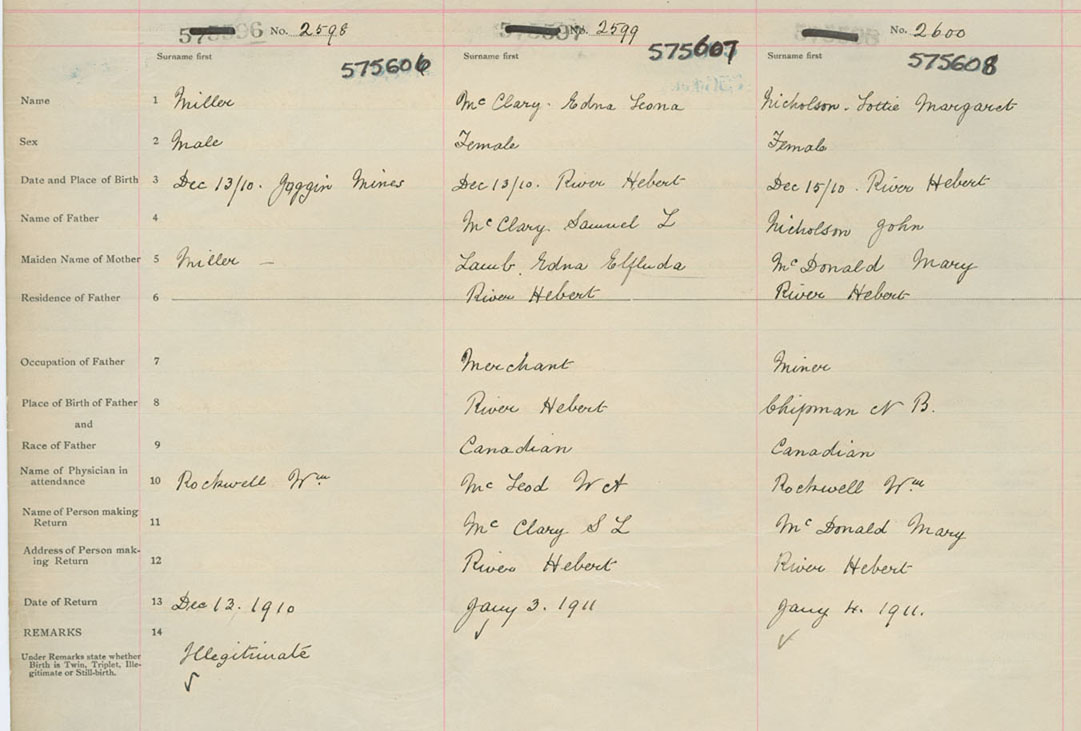 No. 2598 No. 2599 No. 2600
Surname first 575606 Surname first 575607 Surname first 575608
Name 1 Miller McClary. Edna Leona Nicholson. Lottie Margaret
Sex 2 Male Female Female
Date and Place of Birth 3 Dec 13/10. Joggin Mines Dec 13/10. River Hebert Dec 15/10. River Hebert
Name of Father 4 McClary. Samuel L Nicholson John
Maiden Name of Mother 5 Miller — Lamb. Edna Elfluda McDonald Mary
Residence of Father 6 River Hebert River Hebert
Occupation of Father 7 Merchant Miner
Place of Birth of Father 8 River Hebert Chipman N B.
and
Race of Father 9 Canadian Canadian
Name of Physician in
attendance 10 Rockwell Wm McLeod W A Rockwell Wm
Name of Person making
Return 11 McClary S L McDonald Mary
Address of Person mak-
ing Return 12 River Hebert River Hebert
Date of Return 13 Dec 13. 1910 Jany 3. 1911 Jany 4. 1911.
REMARKS 14
Under Remarks state whether
Birth is Twin, Triplet, Ille-
gitimate or Still-birth.
Illegitimate